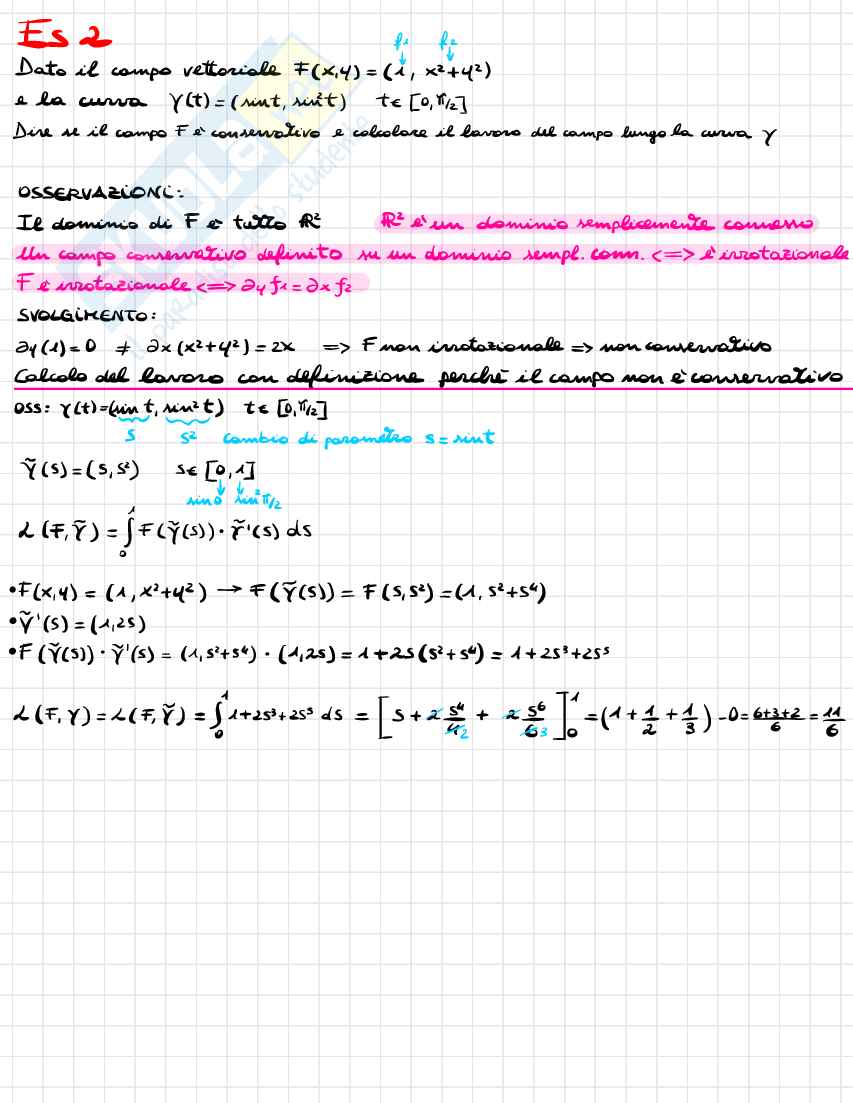 Es 2
f1 f2
Dato il campo vettoriale F(x,y) = (1, x²+y²)
e la curva γ(t) = (sint, sin²t) t ∈ [0,π/2]
Dire se il campo F è conservativo e calcolare il lavoro del campo lungo la curva γ
OSSERVAZIONI:
Il dominio di F è tutto ℝ² ℝ² è un dominio semplicemente connesso
Un campo conservativo definito su un dominio sempl. conn. <=> è irrotazionale
F è irrotazionale <=> ∂y f1 = ∂x f2
SVOLGIMENTO:
∂y(1) = 0 ≠ ∂x(x²+y²) = 2x => F non irrotazionale => non conservativo
Calcolo del lavoro con definizione perché il campo non è conservativo
OSS: γ(t) = (sin t, sin² t) t ∈ [0,π/2]
s s² cambio di parametro s = sint
γ̃(s) = (s, s²) s ∈ [0,1]
sin0 sin²π/2
L(F, γ̃) = ∫₀¹ F(γ̃(s)) · γ̃'(s) ds
• F(x,y) = (1, x²+y²) → F(γ̃(s)) = F(s, s²) = (1, s²+s⁴)
• γ̃'(s) = (1, 2s)
• F(γ̃(s)) · γ̃'(s) = (1, s²+s⁴) · (1, 2s) = 1 + 2s(s²+s⁴) = 1 + 2s³ + 2s⁵
L(F, γ) = L(F, γ̃) = ∫₀¹ 1 + 2s³ + 2s⁵ ds = [s + 2 s⁴/4 2 + 2 s⁶/6 3]₀¹ = (1 + 1/2 + 1/3) - 0 = 6+3+2/6 = 11/6